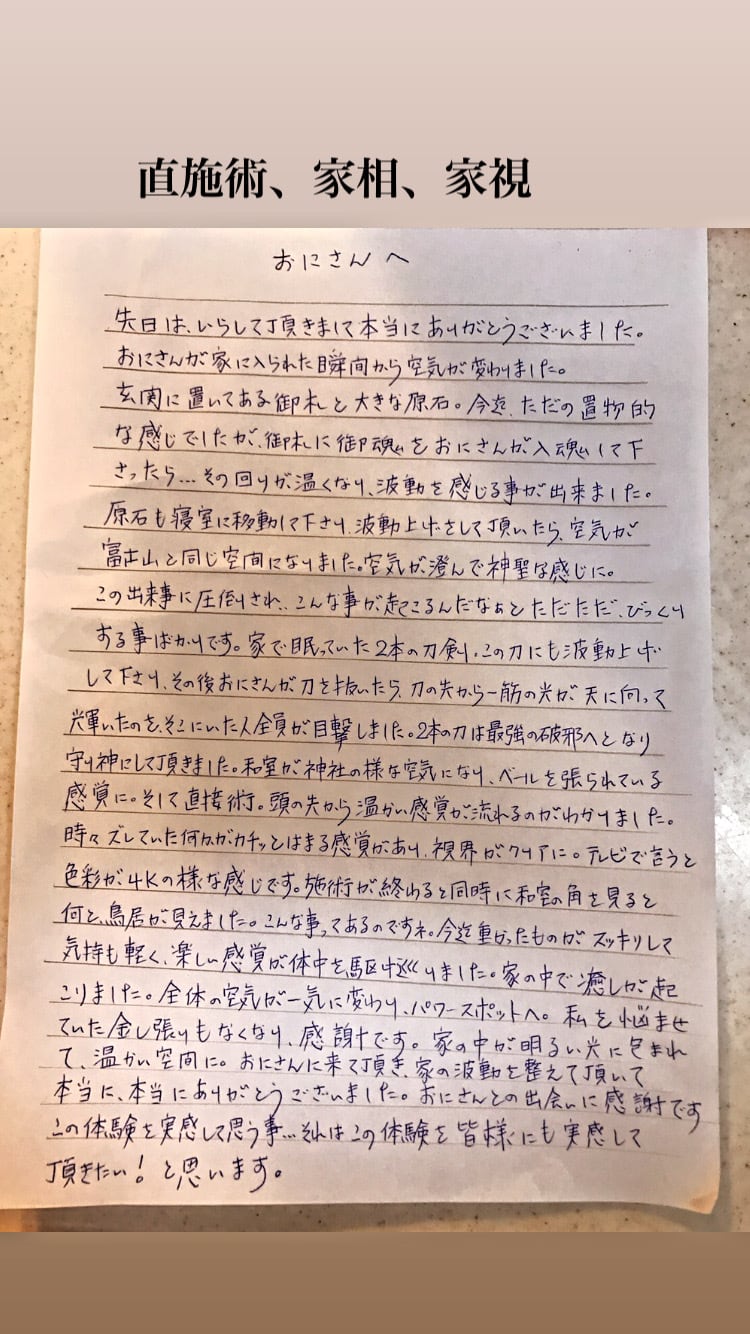 直施術、家相、家視
おにさんへ
先日は、いらして頂きまして本当にありがとうございました。
おにさんが家に入られた瞬間から空気が変わりました。
玄関に置いてある御札と大きな原石。今迄、ただの置物的
な感じでしたが、御札に御魂をおにさんが入魂して下
さったら...その回りが温くなり、波動を感じる事が出来ました。
原石も寝室に移動して下さり、波動上げをして頂いたら、空気が
富士山と同じ空間になりました。空気が澄んで神聖な感じに。
この出来事に圧倒され、こんな事が起こるんだなぁとただただ、びっくり
する事ばかりです。家で眠っていた2本の刀剣、この刀にも波動上げ
して下さり、その後おにさんが刀を抜いたら、刀の先から一筋の光が天に向って
光輝いたのを、そこにいた人全員が目撃しました。2本の刀は最強の破邪へとなり
守り神にして頂きました。和室が神社の様な空気になり、ベールを張られている
感覚に。そして直接術。頭の先から温かい感覚が流れるのがわかりました。
時々ズレていた何かがカチッとはまる感覚があり、視界がクリアに。テレビで言うと
色彩が4Kの様な感じです。施術が終わると同時に和室の角を見ると
何と、鳥居が見えました。こんな事ってあるのですネ。今迄重かったものがスッキリして
気持も軽く、楽しい感覚が体中を駆け巡りました。家の中で癒しが起
こりました。全体の空気が一気に変わり、パワースポットへ。私を悩ませ
ていた金し張りもなくなり、感謝です。家の中が明るい光に包まれ
て、温かい空間に。おにさんに来て頂き、家の波動を整えて頂いて
本当に、本当にありがとうございました。おにさんとの出会いに感謝です
この体験を実感して思う事...それはこの体験を皆様にも実感して
頂きたい！と思います。